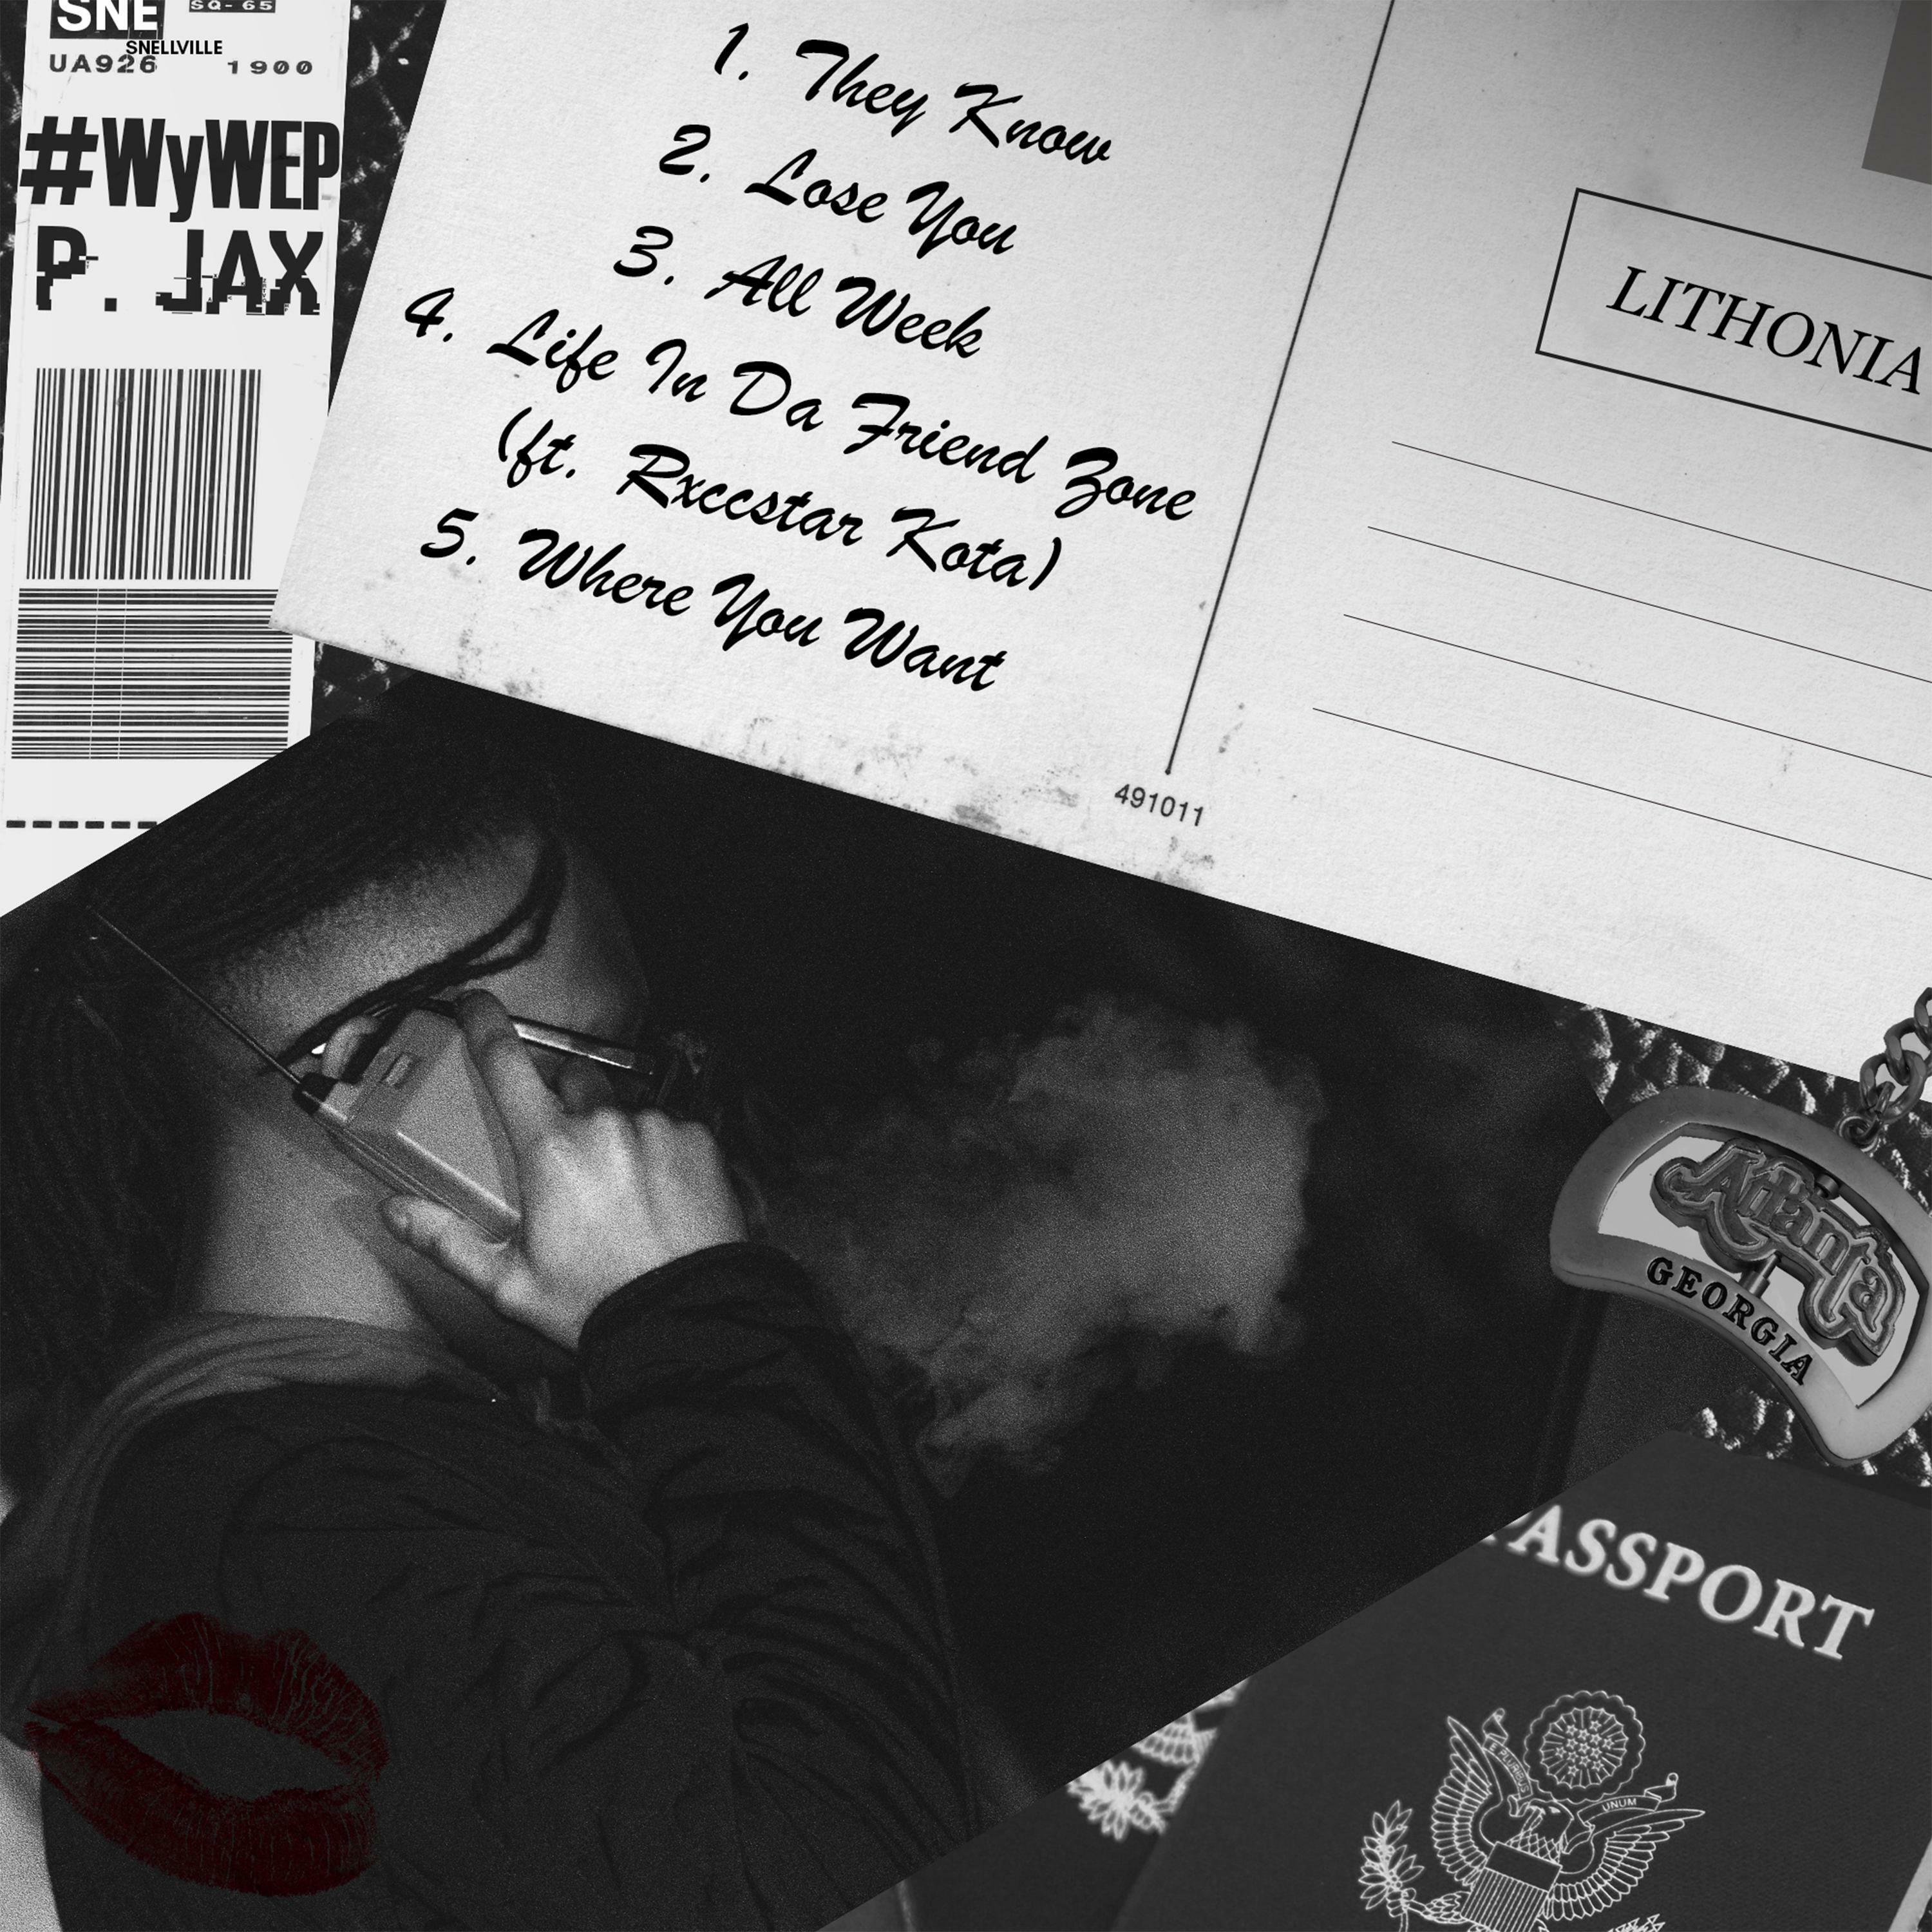 SNE
SQ-65
SNELLVILLE
UA926 1900
#WyWEP
P. JAX
1. They Know
2. Lose You
3. All Week
4. Life In Da Friend Zone
(ft. Rxccstar Kota)
5. Where You Want
491011
LITHONIA
Atlanta
GEORGIA
PASSPORT
E PLURIBUS
UNUM